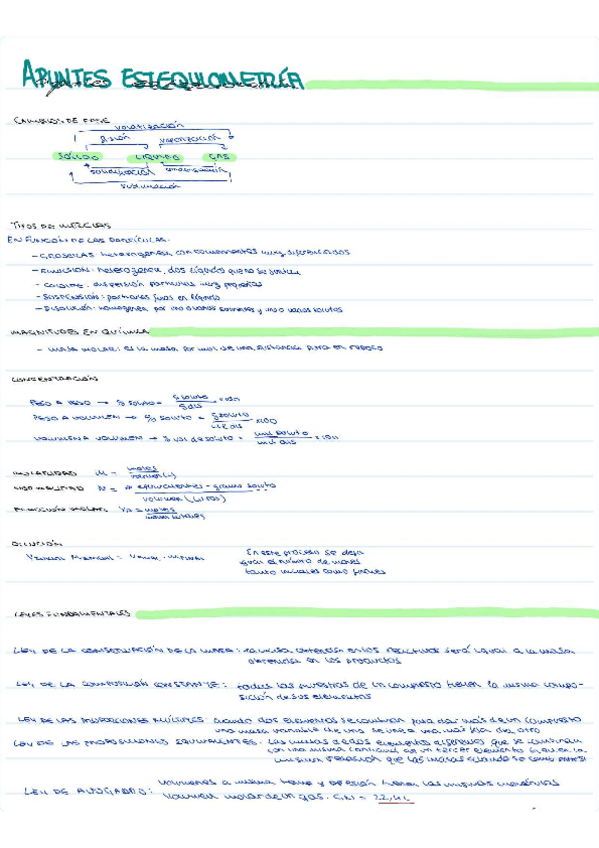 APUNTES ESTEQUIOMETRÍA
CAMBIOS DE FASE
volatilización
fusión vaporización
SÓLIDO LÍQUIDO GAS
solidificación condensación
sublimación
TIPOS DE MEZCLAS
EN FUNCIÓN DE LAS PARTÍCULAS:
- GROSERAS: heterogénea, con componentes muy diferenciados
- EMULSIÓN: heterogénea, dos líquidos que no se juntan
- COLOIDE: dispersión partículas muy pequeñas
- SUSPENSIÓN: partículas finas en líquido
- DISOLUCIÓN: homogénea por uno o varios solventes y uno o varios solutos
MAGNITUDES EN QUÍMICA
- MASA MOLAR: es la masa por mol de una sustancia pura en
CONCENTRACIÓN
PESO A PESO → % soluto = g soluto / g dis × 100
PESO A VOLUMEN → % soluto = g soluto / mL dis × 100
VOLUMEN A VOLUMEN → % vol de soluto = mL soluto / mL dis × 100
MOLARIDAD M = moles / volumen (L)
NORMALIDAD N = # equivalentes - gramo soluto / volumen (litros)
FRACCIÓN MOLAR = moles / moles totales
DILUCIÓN
En este proceso se deja
igual el número de moles
tanto iniciales como finales
LEYES FUNDAMENTALES
LEY DE LA CONSERVACIÓN DE LA MASA: la masa obtenida en los reactivos será igual a la masa
obtenida en los productos
LEY DE LA COMPOSICIÓN CONSTANTE: todas las muestras de un compuesto tienen la misma compo-
sición de sus elementos
LEY DE LAS PROPORCIONES MÚLTIPLES: cuando dos elementos se combinan para dar más de un compuesto
una masa variable de uno se une a una masa fija del otro
LEY DE LAS PROPORCIONES EQUIVALENTES: Las masas de dos elementos diferentes que se combinan
con una misma cantidad de un tercer elemento, en la
misma relación que las masas cuando se
LEY DE AVOGADRO: volúmenes a misma temp y presión tienen las mismas moléculas
volumen molar de un gas. C.N = 22,4 L